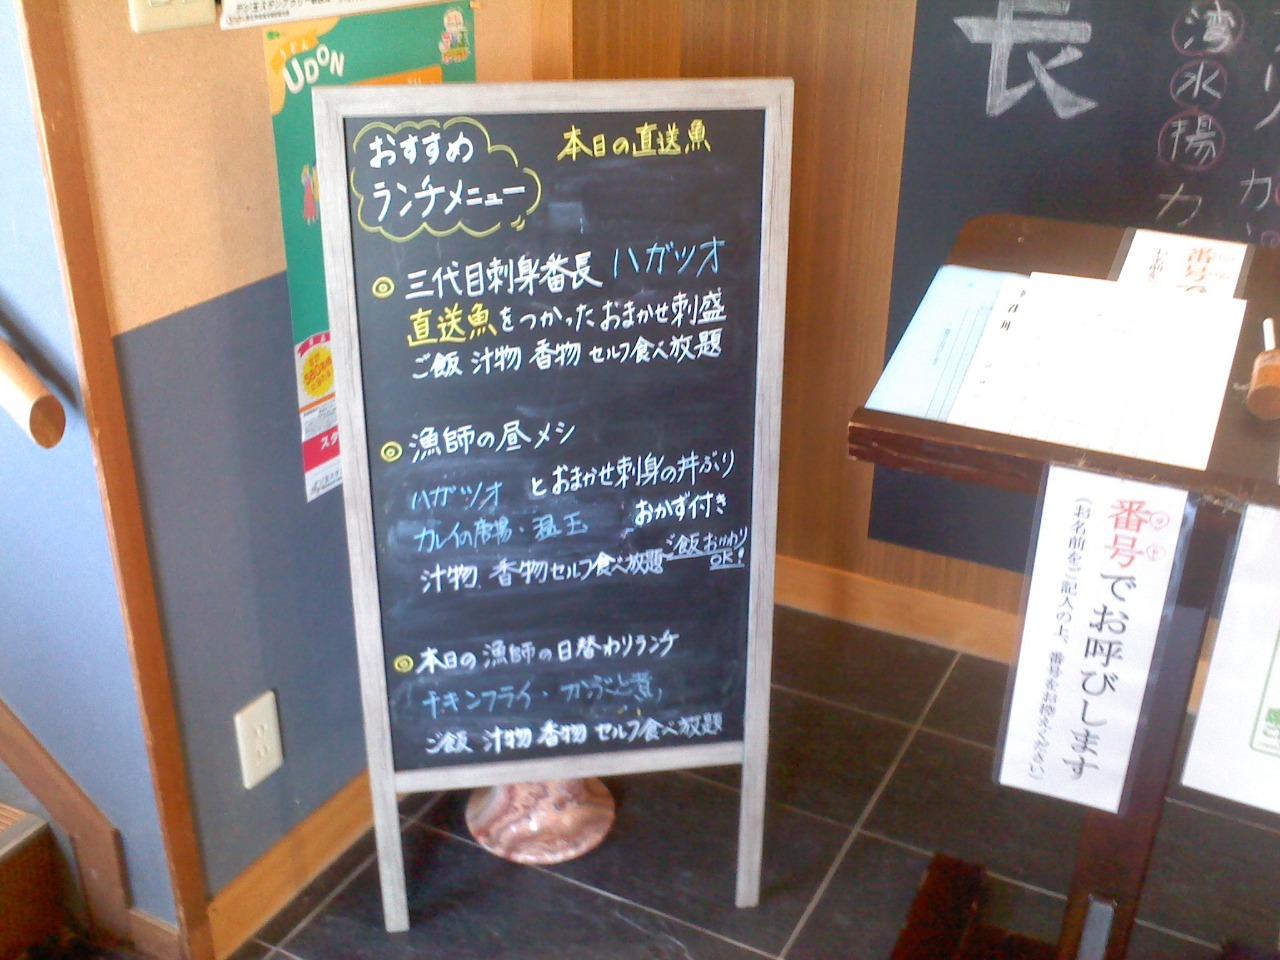 UDON
おすすめ
ランチメニュー
本日の直送魚
◎三代目刺身番長 ハガツオ
直送魚をつかったおまかせ刺盛
ご飯 汁物 香物 セルフ食べ放題
◎漁師の昼メシ
ハガツオ とおまかせ刺身の丼ぶり
カレイの唐揚・温玉 おかず付き
汁物、香物セルフ食べ放題 ご飯おかわり
OK!
◎本日の漁師の日替わりランチ
チキンフライ・かぶと煮
ご飯 汁物 香物 セルフ食べ放題
長
湾水揚
番号でお呼びします
(お名前をご記入の上、番号をお控えください)